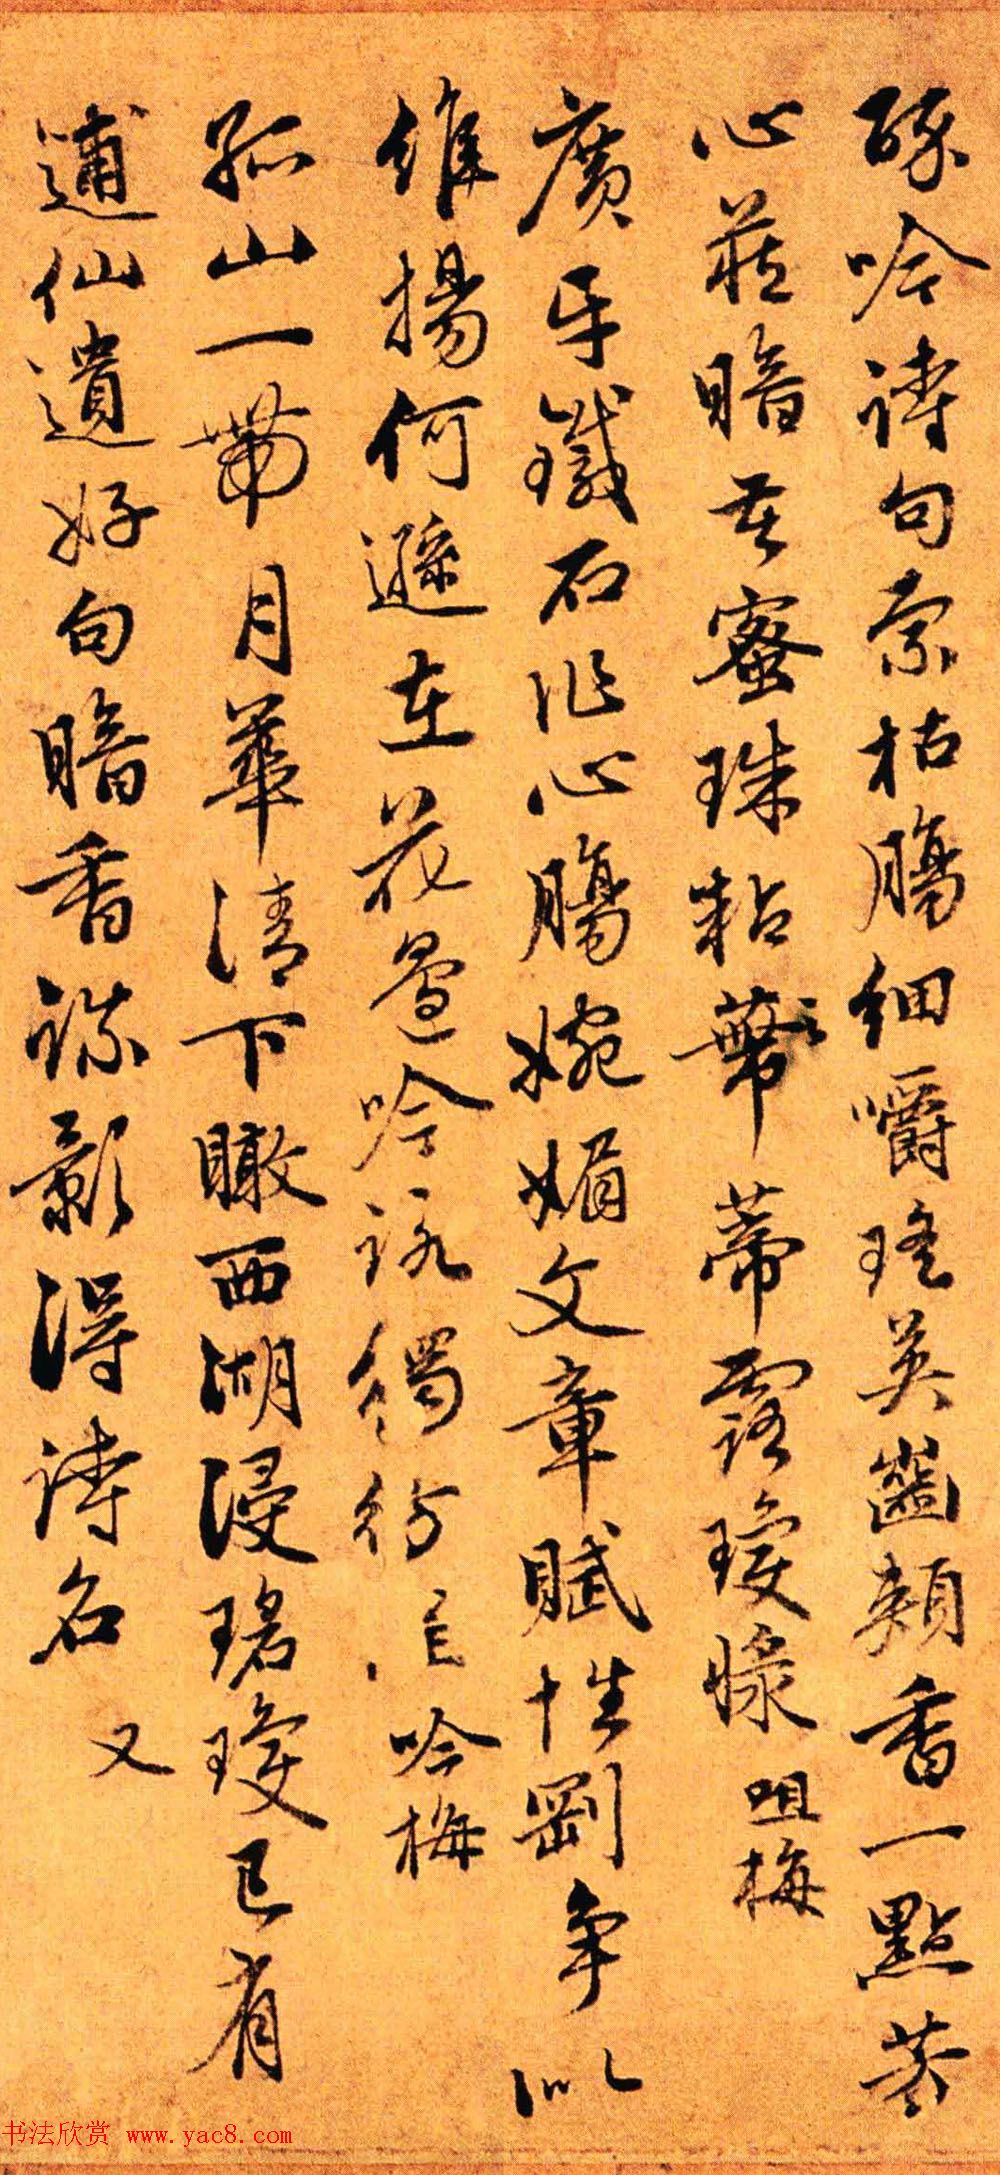 醉吟詩句索枯腸細嚼瑤英齒頰香一點芳
心藏暗其蜜珠粘帶蒂露瓊漿 咀梅
廣平鐵石作心腸婉媚文章賦性剛争似
維揚何遜在花邊吟詠獨彷 吟梅
孤山一帶月華清下瞰西湖浸碧瓊已有
逋仙遺好句暗香疎影得詩名 又
书法欣赏 www.yac8.com